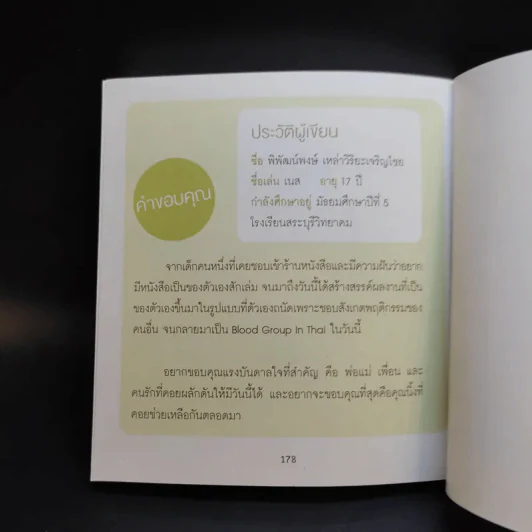 ประวัติผู้เขียน
ชื่อ พิพัฒน์พงษ์ เหล่าวิริยะเจริญไชย
ชื่อเล่น เนส อายุ 17 ปี
กำลังศึกษาอยู่ มัธยมศึกษาปีที่ 5
โรงเรียนสระบุรีวิทยาคม
คำขอบคุณ
จากเด็กคนหนึ่งที่เคยชอบเข้าร้านหนังสือและมีความฝันว่าอยาก
มีหนังสือเป็นของตัวเองสักเล่ม จนมาถึงวันนี้ได้สร้างสรรค์ผลงานที่เป็น
ของตัวเองขึ้นมาในรูปแบบที่ตัวเองถนัดเพราะชอบสังเกตพฤติกรรมของ
คนอื่น จนกลายมาเป็น Blood Group In Thai ในวันนี้
อยากขอบคุณแรงบันดาลใจที่สำคัญ คือ พ่อแม่ เพื่อน และ
คนรักที่คอยผลักดันให้มีวันนี้ได้ และอยากจะขอบคุณที่สุดคือคุณนิ้งที่
คอยช่วยเหลือกันตลอดมา
178